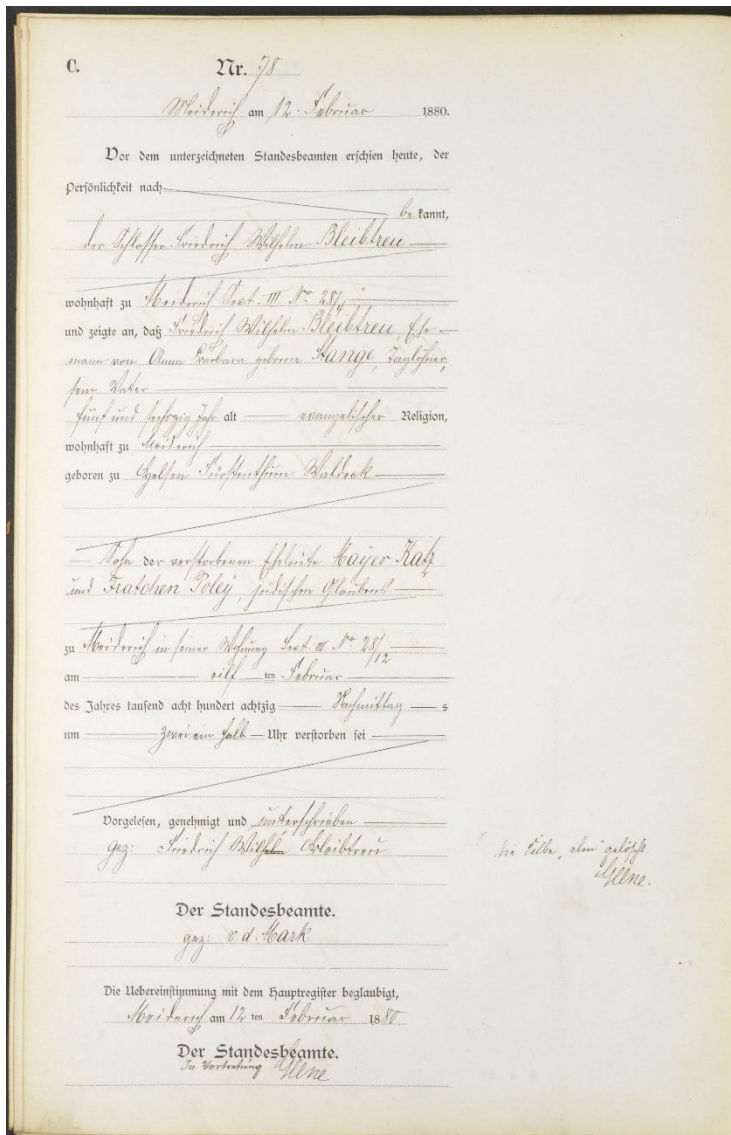 C. Nr. 78
Meiderich am 12. Februar 1880.
Vor dem unterzeichneten Standesbeamten erschien heute, der
Persönlichkeit nach
bekannt,
der Schlosser Friedrich Wilhelm Bleibtreu
wohnhaft zu Meiderich Sect: III No 28/
und zeigte an, daß Friedrich Wilhelm Bleibtreu, Ehe-
mann von Anna Barbara geborene Stange, Taglöhner,
sein Vater
fünf und sechszig Jahr alt evangelischer Religion,
wohnhaft zu Meiderich
geboren zu Helsen Fürstenthum Waldeck
Sohn der verstorbenen Eheleute Mayer Katz
und Fratchen Poley, jüdischen Glaubens
zu Meiderich in seiner Wohnung Sect. III No 28/12
am eilf ten Februar
des Jahres tausend acht hundert achtzig Nachmittag s
um zwei ein halb Uhr verstorben sei
Vorgelesen, genehmigt und unterschrieben
gez: Friedrich Wilhelm Bleibtreu
die Silbe "elm" gelöscht
Der Standesbeamte.
gez: v. d. Mark
Die Uebereinstimmung mit dem Hauptregister beglaubigt,
Meiderich am 12 ten Februar 1880
Der Standesbeamte.
In Vertretung